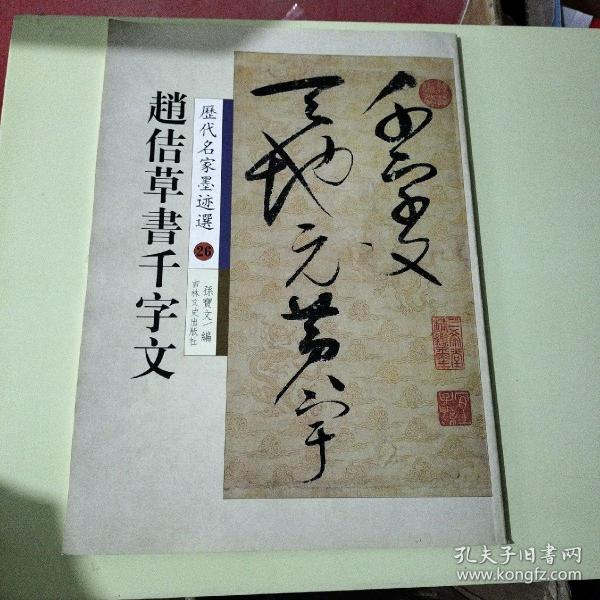 趙佶草書千字文
歷代名家墨迹選
26
孫寶文 編
吉林文史出版社
千字文
天地元黄宇
孔夫子旧书网
www.kongfz.com